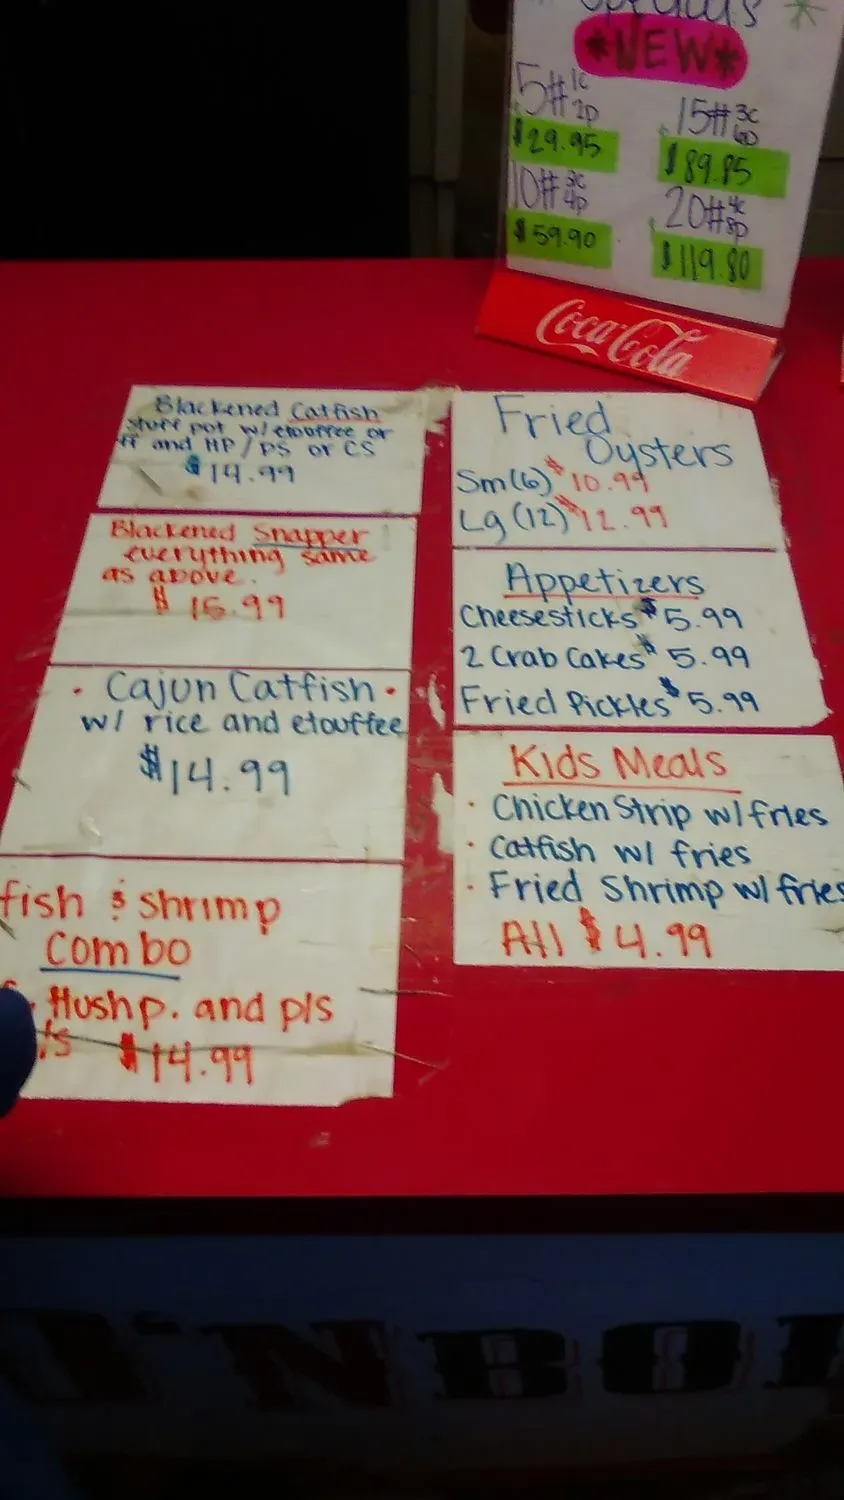 Specials
*NEW*
5# 1c
2p
$29.95
15# 3c
6p
$89.85
10#
4p
$59.90
20# 4c
8p
$119.80
Coca-Cola
Blackened Catfish
stuff pot w/ etouffee or
ff and HP/PS or CS
$14.99
Blackened Snapper
everything same
as above.
$15.99
• Cajun Catfish •
w/ rice and etouffee
$14.99
fish & shrimp
Combo
Hush p. and p/s
/s $14.99
Fried
Oysters
Sm (6) $10.99
Lg (12) $12.99
Appetizers
Cheesesticks $5.99
2 Crab Cakes $5.99
Fried Pickles $5.99
Kids Meals
• Chicken Strip w/ fries
• Catfish w/ fries
• Fried Shrimp w/ fries
All $4.99
'N BOI